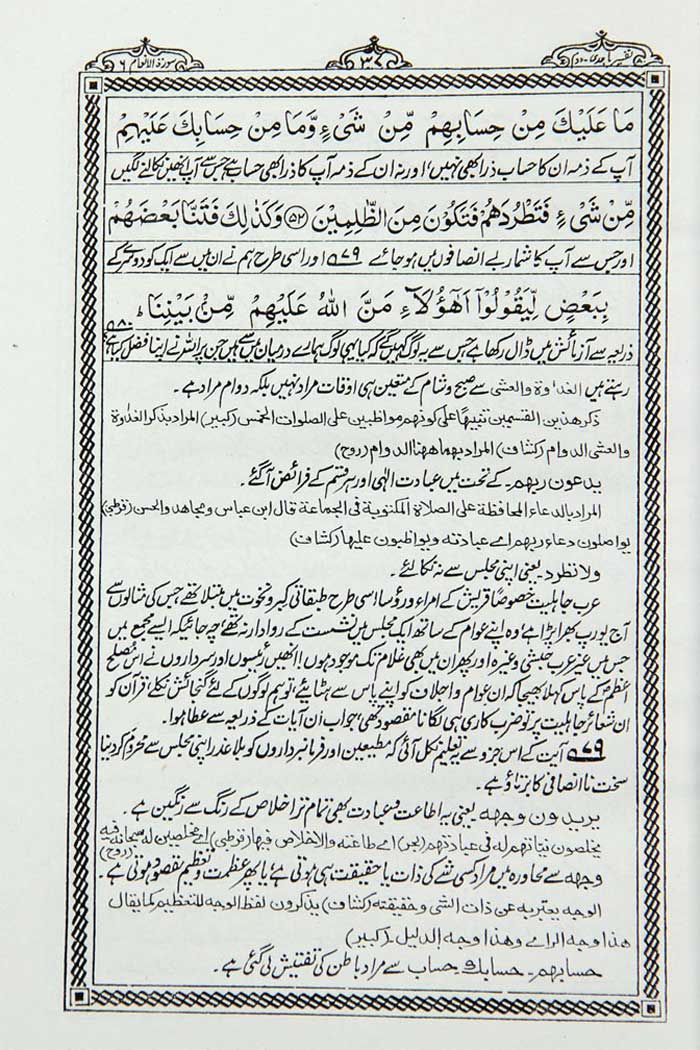 تفسیر ماجدی - دوم
۳۷
سورۃ الانعام ۶
مَا عَلَيْكَ مِنْ حِسَابِهِمْ مِّنْ شَيْءٍ وَّمَا مِنْ حِسَابِكَ عَلَيْهِمْ
آپ کے ذمہ ان کا حساب ذرا بھی نہیں، اور نہ ان کے ذمہ آپ کا ذرا بھی حساب ہے جس سے آپ انھیں نکالنے لگیں
مِّنْ شَيْءٍ فَتَطْرُدَهُمْ فَتَكُوْنَ مِنَ الظّٰلِمِيْنَ ﴿۵۲﴾ وَكَذٰلِكَ فَتَنَّا بَعْضَهُمْ
اور جس سے آپ کا شمار بے انصافوں میں ہو جائے ۷۹ اور اسی طرح ہم نے ان میں سے ایک کو دوسرے کے
بِبَعْضٍ لِّيَقُوْلُوْٓا اَهٰٓؤُلَآءِ مَنَّ اللّٰهُ عَلَيْهِمْ مِّنْۢ بَيْنِنَا ؕ
ذریعہ سے آزمائش میں ڈال رکھا ہے جس سے یہ لوگ کہیں گے کہ کیا یہی لوگ ہمارے درمیان میں سے ہیں جن پر اللہ نے اپنا فضل کیا ہے ۸۰
رہتے ہیں الغداوۃ والعشی سے صبح و شام کے متعین ہی اوقات مراد نہیں بلکہ دوام مراد ہے۔
ذکر ھذین القسمین تنبیھا علی کونھم مواظبین علی الصلوات الخمس (کبیر) المراد بذکر الغدٰوۃ
والعشی الدوام (کشاف) المراد بھما ھھنا الدوام (روح)
یدعون ربھم۔ کے تحت میں عبادت الٰہی اور ہر قسم کے فرائض آ گئے۔
المراد بالدعاء المحافظۃ علی الصلاۃ المکتوبۃ فی الجماعۃ قال ابن عباس و مجاھد والحسن (قرطبی)
یواصلون دعاء ربھم اے عبادتہ و یواظبون علیھا (کشاف)
ولا تطرد۔ یعنی اپنی مجلس سے نہ نکالئے۔
عرب جاہلیت خصوصًا قریش کے امراء و رؤسا اسی طرح طبقاتی کبر و نخوت میں مبتلا تھے جس کی مثالوں سے
آج یورپ بھرا پڑا ہے، وہ اپنے عوام کے ساتھ ایک مجلس میں نشست کے روادار نہ تھے، چہ جائیکہ ایسے مجمع میں
جس میں غیر عرب حبشی وغیرہ اور پھر ان میں بھی غلام تک موجود ہوں! انھیں رئیسوں اور سرداروں نے اس مصلح
اعظمؐ کے پاس کہلا بھیجا کہ ان عوام و اجلاف کو اپنے پاس سے ہٹائیے، تو ہم لوگوں کے لئے گنجائش نکلے، قرآن کو
ان شعائر جاہلیت پر تو ضرب کاری ہی لگانا مقصود تھی، جواب ان آیات کے ذریعہ سے عطا ہوا۔
۷۹ آیت کے اس جزو سے یہ تعلیم نکل آئی کہ مطیعین اور فرمانبرداروں کو بلا عذر اپنی مجلس سے محروم کر دینا
سخت نا انصافی کا برتاؤ ہے۔
یریدون وجھہ یعنی یہ اطاعت و عبادت بھی تمام تر اخلاص کے رنگ سے رنگین ہے۔
یخلصون نیاتھم لہ فی عبادتھم (بحر) اے طاعتہ والاخلاص فیھا (قرطبی) اے مخلصین لہ سبحانہ فیہ (روح)
وجھہ سے محاورہ میں مراد کسی شے کی ذات یا حقیقت ہی ہوتی ہے، یا پھر عظمت و تعظیم مقصود ہوتی ہے۔
الوجہ یعتبر بہ عن ذات الشی و حقیقتہ (کشاف) یذکرون لفظ الوجہ للتعظیم کما یقال
ھذا وجہ الراے و ھذا وجہ الدلیل۔ (کبیر)
حسابھم۔ حسابک و حساب سے مراد باطن کی تفتیش لی گئی ہے۔